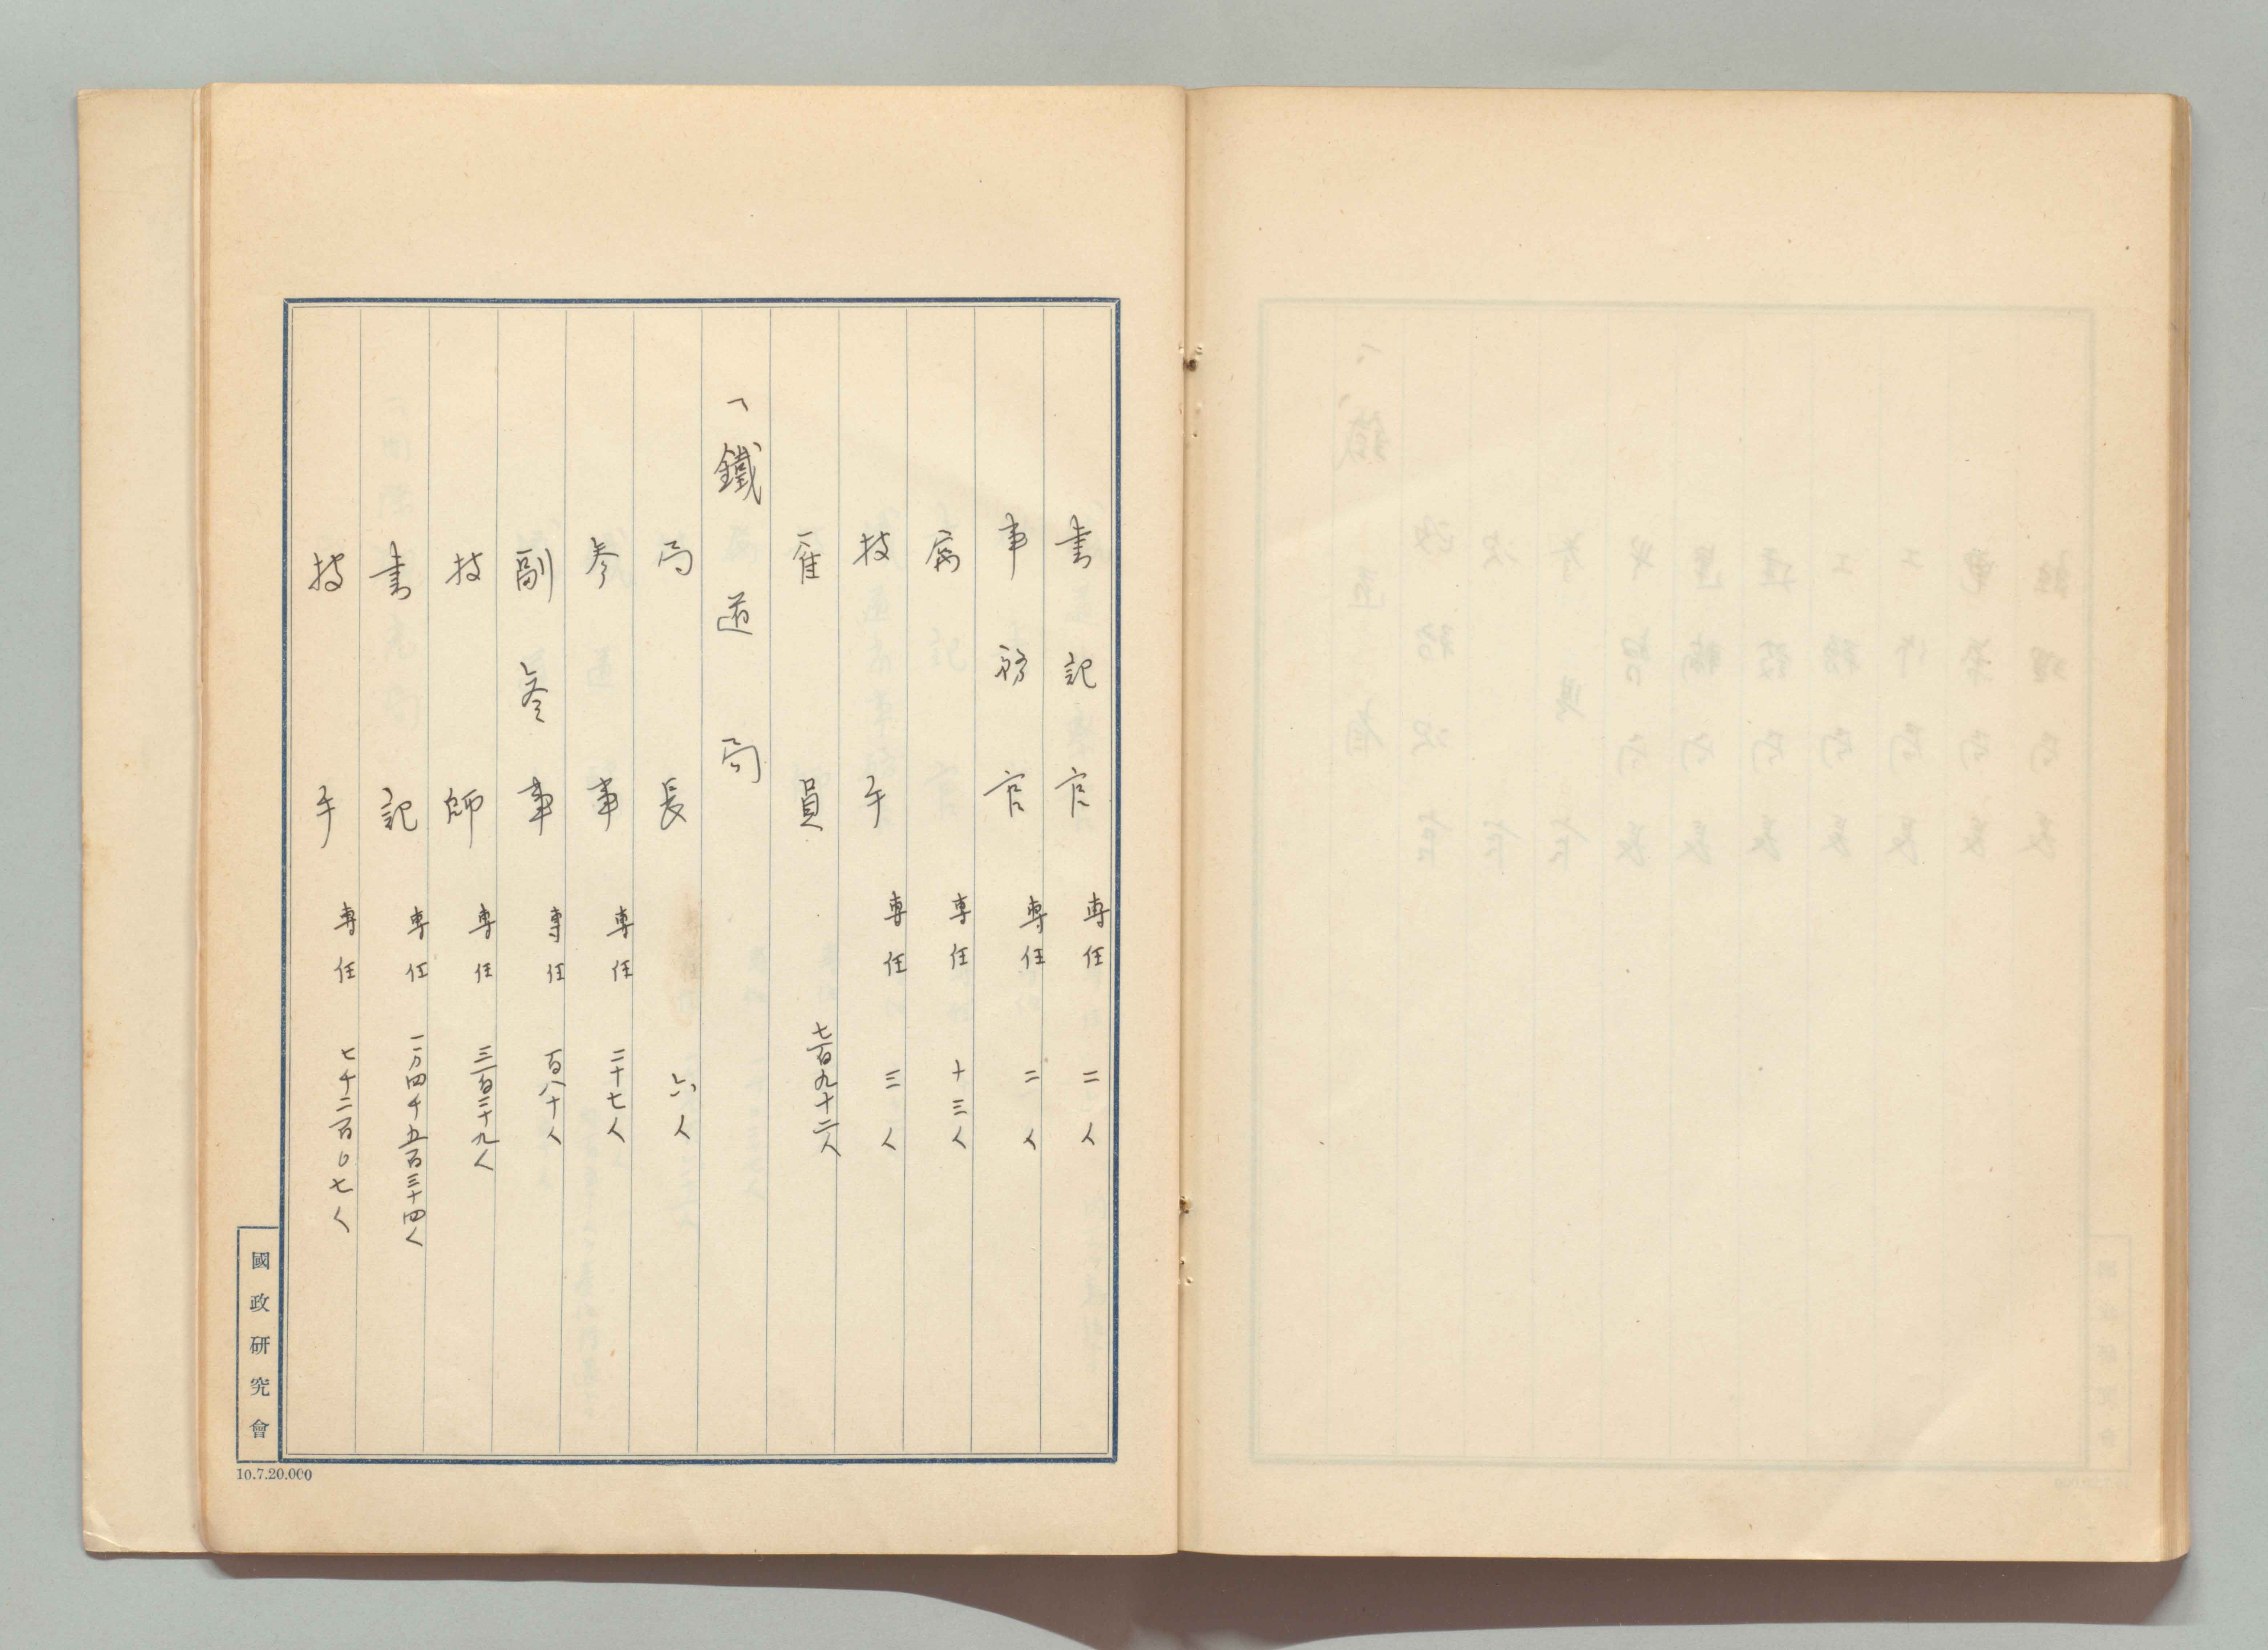 書記官 専任 二人
事務官 専任 二人
属 専任 十三人
技手 専任 三人
雇員 七百九十二人
一、鐵道局
局長 六人
参事 専任 二十七人
副参事 専任 百八十人
技師 専任 三百二十九人
書記 専任 一万四千五百三十四人
技手 専任 七千二百〇七人
國政研究會
10.7.20.000